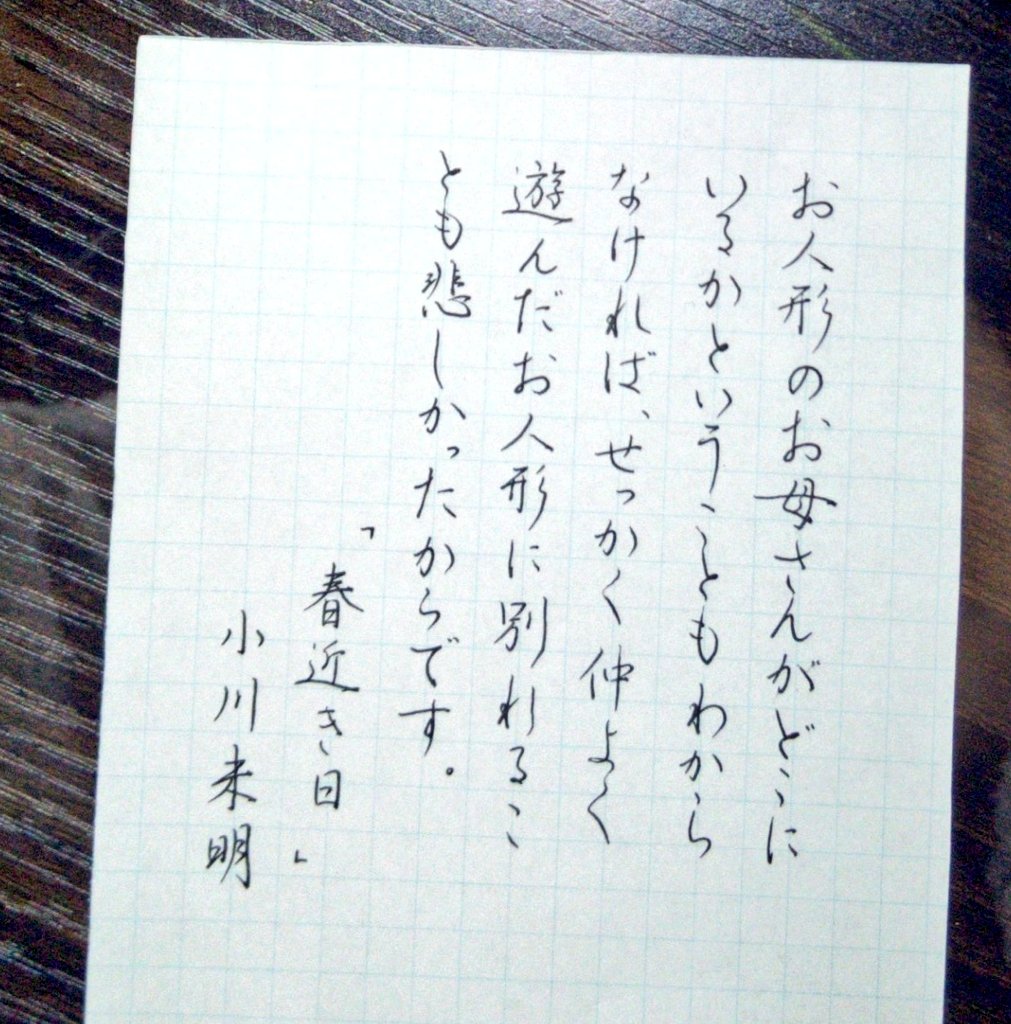 お人形のお母さんがどこに
いるかということもわから
なければ、せっかく仲よく
遊んだお人形に別れるこ
とも悲しかったからです。
「春近き日」
小川未明